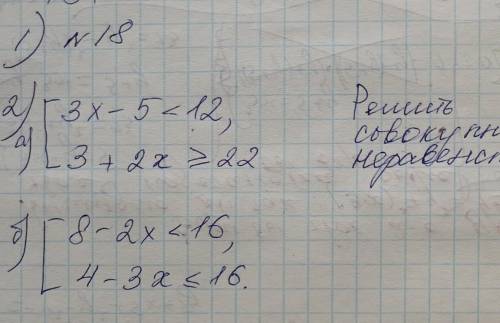 1) N18
2) а) [ 3x - 5 < 12,
3 + 2x ≥ 22
Решить
совокупн
неравенст
б) [ 8 - 2x < 16,
4 - 3x ≤ 16.